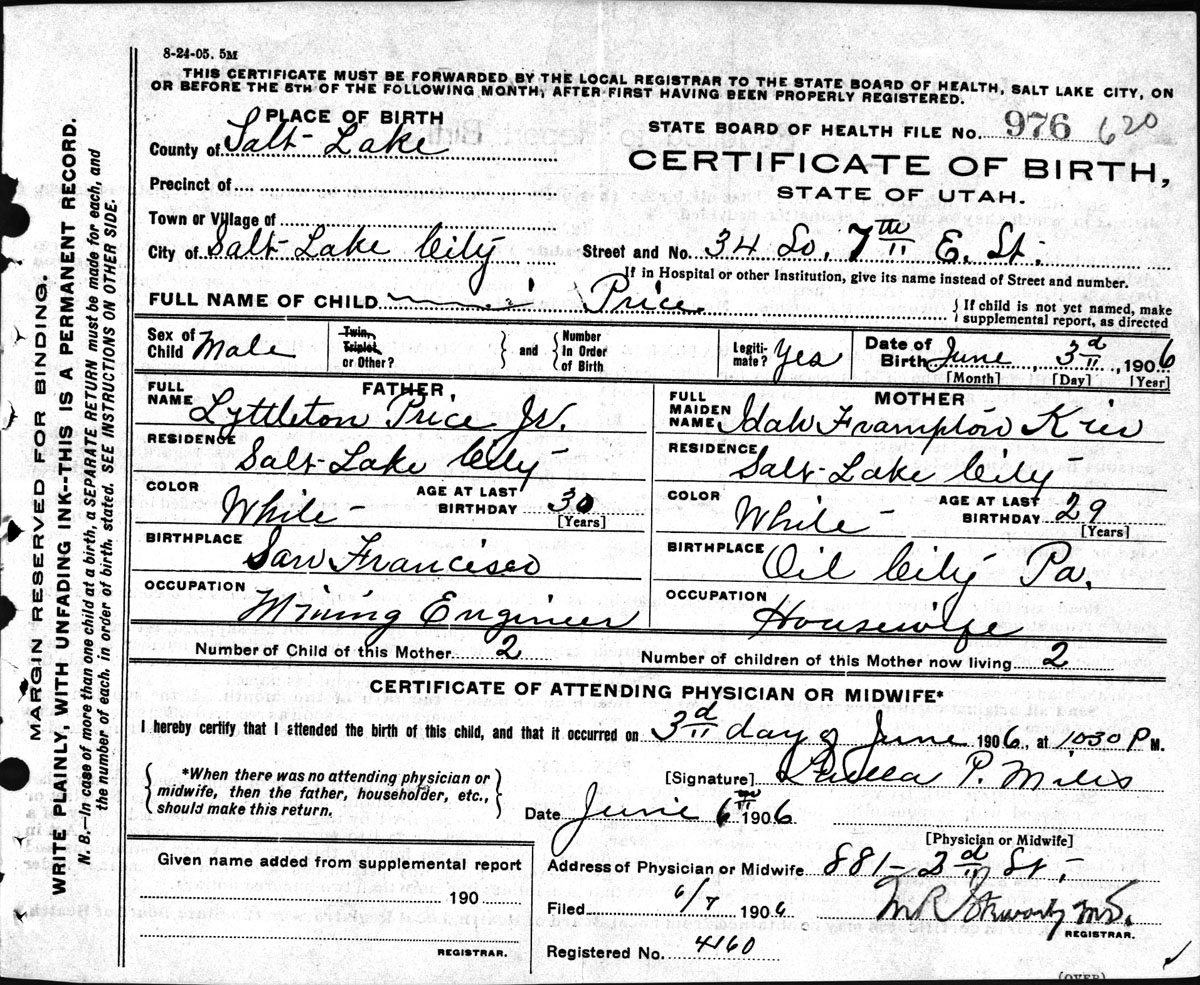 8-24-05. 5M
THIS CERTIFICATE MUST BE FORWARDED BY THE LOCAL REGISTRAR TO THE STATE BOARD OF HEALTH, SALT LAKE CITY, ON
OR BEFORE THE 5TH OF THE FOLLOWING MONTH, AFTER FIRST HAVING BEEN PROPERLY REGISTERED.
PLACE OF BIRTH
STATE BOARD OF HEALTH FILE No. 976 620
County of Salt Lake
CERTIFICATE OF BIRTH,
STATE OF UTAH.
Precinct of
Town or Village of
City of Salt Lake City Street and No. 34 So. 7th E. St.
If in Hospital or other Institution, give its name instead of Street and number.
FULL NAME OF CHILD Price. {If child is not yet named, make
supplemental report, as directed
Sex of Child Male
Twin, Triplet, or Other? } and { Number In Order of Birth
Legitimate? Yes
Date of Birth June 3d, 1906
[Month] [Day] [Year]
FATHER
FULL NAME Lyttleton Price Jr.
RESIDENCE Salt Lake City
COLOR White AGE AT LAST BIRTHDAY 30
[Years]
BIRTHPLACE San Francisco
OCCUPATION Mining Engineer
MOTHER
FULL MAIDEN NAME Idah Frampton
RESIDENCE Salt Lake City
COLOR White AGE AT LAST BIRTHDAY 29
[Years]
BIRTHPLACE Oil City Pa.
OCCUPATION Housewife
Number of Child of this Mother 2 Number of children of this Mother now living 2
CERTIFICATE OF ATTENDING PHYSICIAN OR MIDWIFE*
I hereby certify that I attended the birth of this child, and that it occurred on 3d day of June 1906, at 1030 P M.
{*When there was no attending physician or
midwife, then the father, householder, etc.,
should make this return.}
[Signature] P. Miles
Date June 6 1906
[Physician or Midwife]
Given name added from supplemental report
190
REGISTRAR.
Address of Physician or Midwife 881 - 2d St.
Filed 6/7 1906 M.D.
REGISTRAR.
Registered No. 4160
(OVER)
MARGIN RESERVED FOR BINDING.
WRITE PLAINLY, WITH UNFADING INK--THIS IS A PERMANENT RECORD.
N. B.--In case of more than one child at a birth, a SEPARATE RETURN must be made for each, and
the number of each, in order of birth, stated. SEE INSTRUCTIONS ON OTHER SIDE.